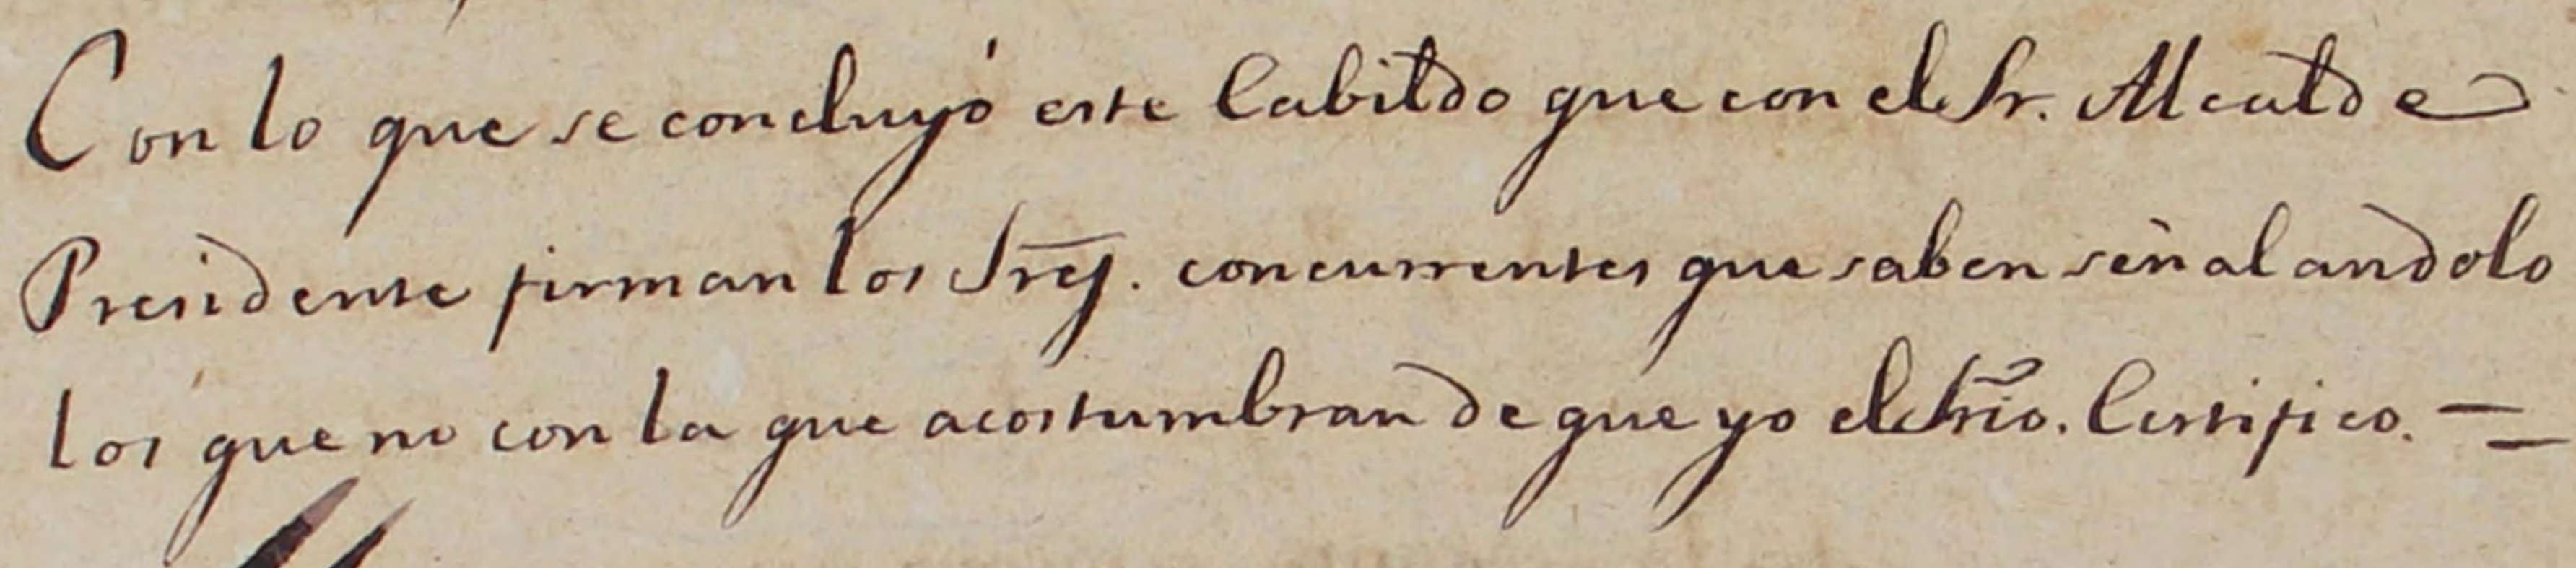 Con lo que se concluyó este Cabildo que con el Sr. Alcalde
Presidente firman los Sres. concurrentes que saben señalandolo
los que no con la que acostumbran de que yo el Srio. Certifico. =